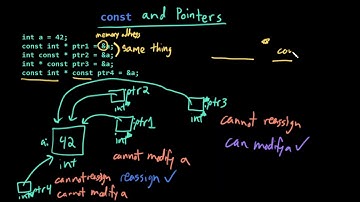 const and Pointers
memory address
int a = 42;
const int * ptr1 = &a;
int const * ptr2 = &a;
same thing
int * const ptr3 = &a;
const int * const ptr4 = &a;
* con
ptr2
int
ptr3
int
ptr1
int
a: 42
int
cannot reassign
can modify a ✓
cannot modify a
ptr4
int
cannot reassign reassign ✓
cannot modify a